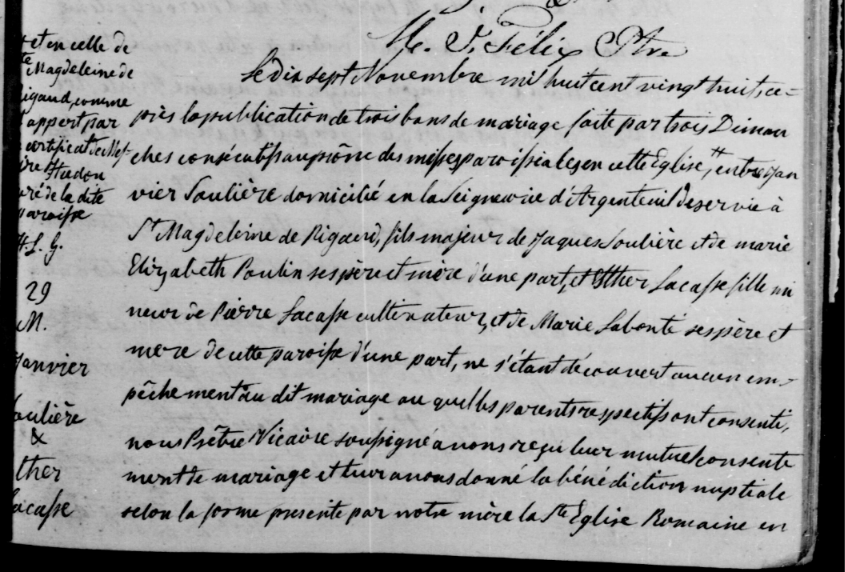 M. J. Félix Ptre
Le dix sept Novembre mil huit cent vingt huit, a-
près la publication de trois bans de mariage faite par trois Diman
ches consécutifs au prône des messes paroissiales en cette Eglise, # entre Jan
vier Soulière domicilié en la Seigneurie d'Argenteuil deservie à
St Magdeleine de Rigaud, fils majeur de Jaques Soulière et de marie
Elizabeth Poulin ses père et mère d'une part, et Esther Lacasse fille mi
neur de Pierre Lacasse cultivateur, et de Marie Labonté ses père et
mère de cette paroisse d'une part, ne s'étant découvert aucun em-
pêchement au dit mariage au quel les parents respectifs ont consenti,
nous Prêtre Vicaire soussigné avons reçu leur mutuel consente
ment de mariage et leur avons donné la bénédiction nuptiale
selon la forme presente par notre mère la Ste Eglise Romaine en
# et en celle de
te Magdeleine de
igaud, comme
l appert par
certificat de Mef
ire Hudon
uré de la dite
paroisse
#L. G.
29
M.
Janvier
oulière
&
ther
acasse